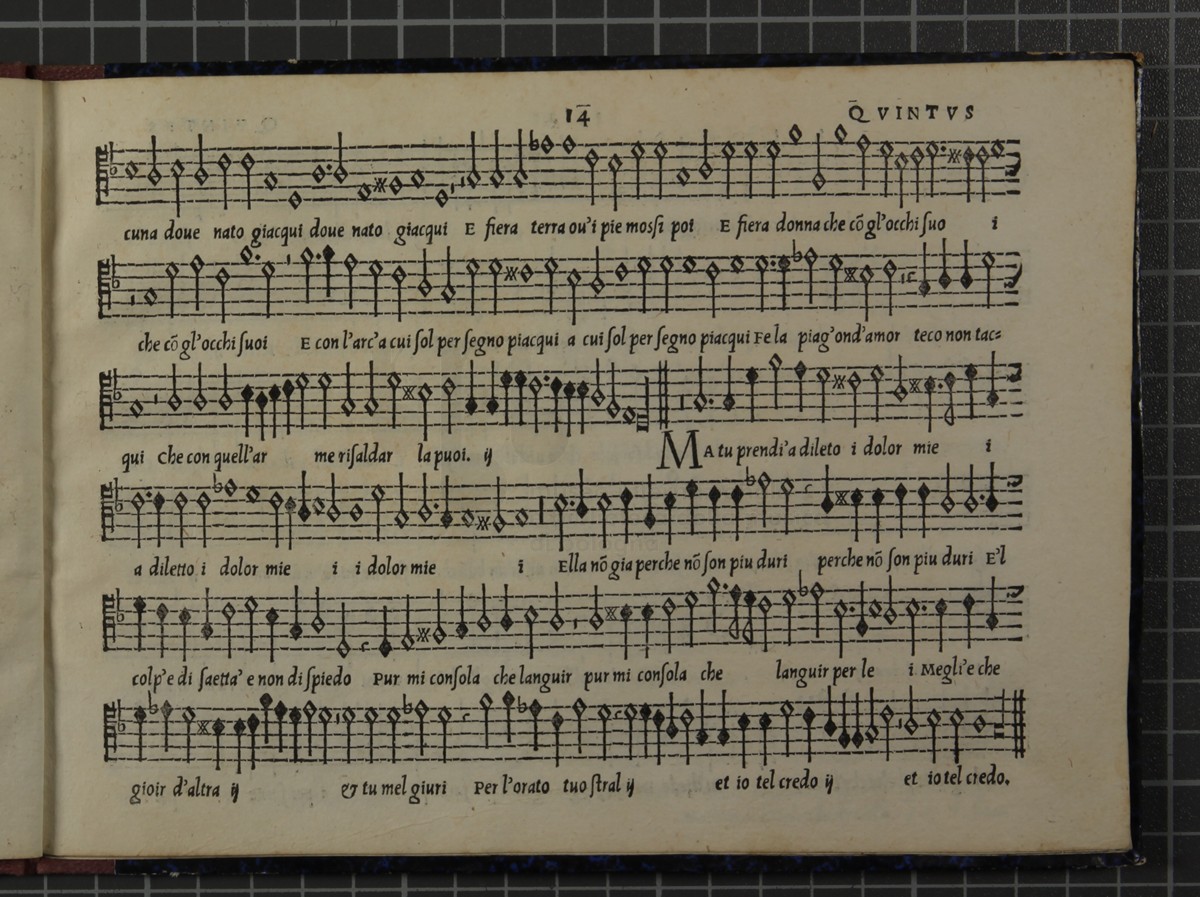 14
Q̄VINTVS
cuna doue nato giacqui doue nato giacqui E fiera terra ou'i pie mossi poi E fiera donna che cõ gl'occhi suo i
che cõ gl'occhi suoi E con l'arc'a cui sol per segno piacqui a cui sol per segno piacqui Fe la piag'ond'amor teco non tac=
qui Che con quell'ar me risaldar la puoi. ij MA tu prendi'a dileto i dolor mie i
a diletto i dolor mie i i dolor mie i Ella nõ gia perche nõ son piu duri perche nõ son piu duri E'l
colp'e di saetta' e non di spiedo Pur mi consola che languir pur mi consola che languir per le i Megli'e che
gioir d'altra ij & tu mel giuri Per l'orato tuo stral ij et io tel credo ij et io tel credo.